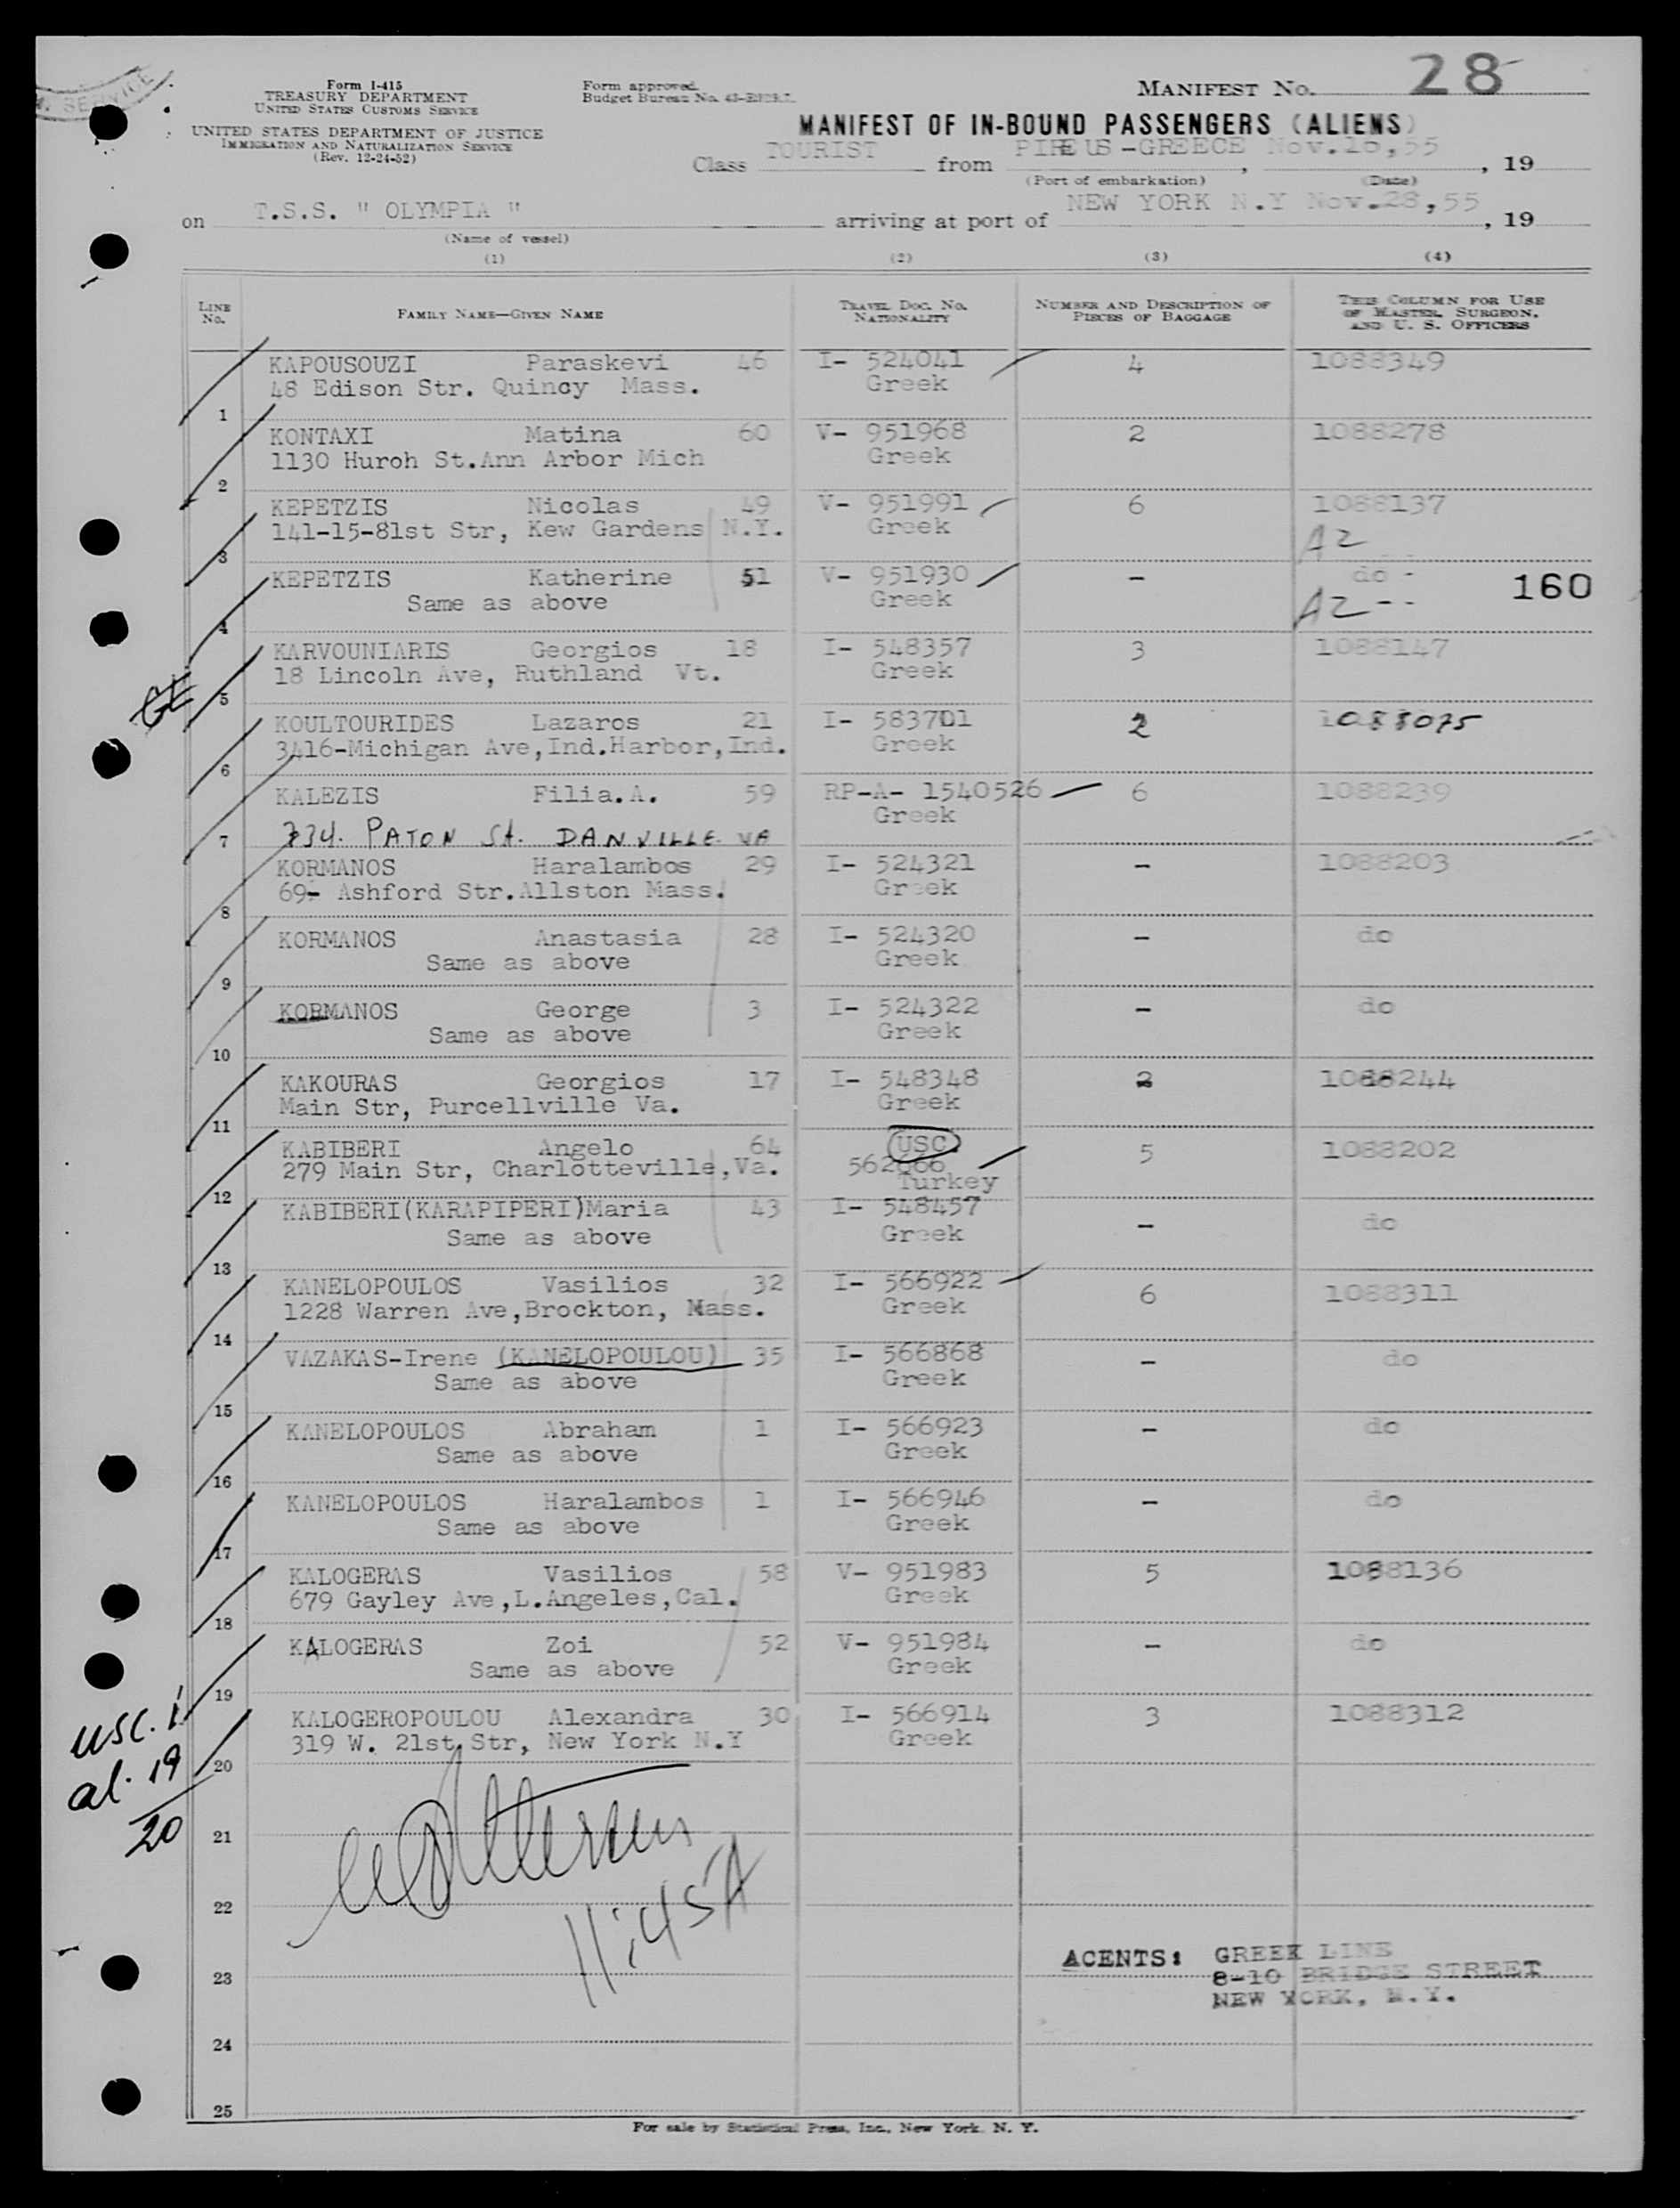 Form I-415
TREASURY DEPARTMENT
UNITED STATES CUSTOMS SERVICE
UNITED STATES DEPARTMENT OF JUSTICE
IMMIGRATION AND NATURALIZATION SERVICE
(Rev. 12-24-52)
Form approved.
Budget Bureau No.
MANIFEST No. 28
MANIFEST OF IN-BOUND PASSENGERS (ALIENS)
Class TOURIST from PIREUS-GREECE Nov.16,55, 19
(Port of embarkation) (Date)
on T.S.S. " OLYMPIA " arriving at port of NEW YORK N.Y Nov.28,55, 19
(Name of vessel)
(1) (2) (3) (4)
LINE No. FAMILY NAME—GIVEN NAME TRAVEL DOC. No. NATIONALITY NUMBER AND DESCRIPTION OF PIECES OF BAGGAGE THIS COLUMN FOR USE OF MASTER, SURGEON, AND U. S. OFFICERS
KAPOUSOUZI Paraskevi 46 I- 524041 4 1088349
48 Edison Str. Quincy Mass. Greek
1
KONTAXI Matina 60 V- 951968 2 1088278
1130 Huroh St.Ann Arbor Mich Greek
2
KEPETZIS Nicolas 49 V- 951991 6 1088137
141-15-81st Str, Kew Gardens N.Y. Greek A2
3
KEPETZIS Katherine 51 V- 951930 - do -
Same as above Greek A2-- 160
4
KARVOUNIARIS Georgios 18 I- 548357 3 1088147
18 Lincoln Ave, Ruthland Vt. Greek
5
KOULTOURIDES Lazaros 21 I- 583701 2 1088075
3416-Michigan Ave,Ind.Harbor,Ind. Greek
6
KALEZIS Filia.A. 59 RP-A- 1540526 6 1088239
Greek
7 734. PATON St. DANVILLE VA
KORMANOS Haralambos 29 I- 524321 - 1088203
69- Ashford Str.Allston Mass. Greek
8
KORMANOS Anastasia 28 I- 524320 - do
Same as above Greek
9
KORMANOS George 3 I- 524322 - do
Same as above Greek
10
KAKOURAS Georgios 17 I- 548348 2 1088244
Main Str, Purcellville Va. Greek
11
KABIBERI Angelo 64 USC 5 1088202
279 Main Str, Charlotteville,Va. 562666
Turkey
12
KABIBERI(KARAPIPERI)Maria 43 I- 548457 - do
Same as above Greek
13
KANELOPOULOS Vasilios 32 I- 566922 6 1088311
1228 Warren Ave,Brockton, Mass. Greek
14
VAZAKAS-Irene (KANELOPOULOU) 35 I- 566868 - do
Same as above Greek
15
KANELOPOULOS Abraham 1 I- 566923 - do
Same as above Greek
16
KANELOPOULOS Haralambos 1 I- 566946 - do
Same as above Greek
17
KALOGERAS Vasilios 58 V- 951983 5 1088136
679 Gayley Ave,L.Angeles,Cal. Greek
18
KALOGERAS Zoi 52 V- 951984 - do
Same as above Greek
19
KALOGEROPOULOU Alexandra 30 I- 566914 3 1088312
319 W. 21st Str, New York N.Y Greek
20
usc. 1
al. 19
20
21
22
11:45A
AGENTS: GREEK LINE
23 8-10 BRIDGE STREET
NEW YORK, N.Y.
24
25
For sale by Statistical Press, Inc., New York, N. Y.